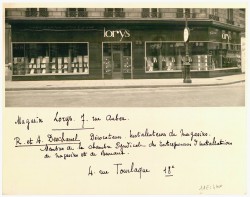 lorys
Magasin Lorys. 7. rue Auber.
R. et A. Décorateurs Installateurs de Magasins.
Membre de la chambre Syndicale des Entrepreneurs d'Installations
de magasins et de bureaux.
4. rue Tourlaque 18e